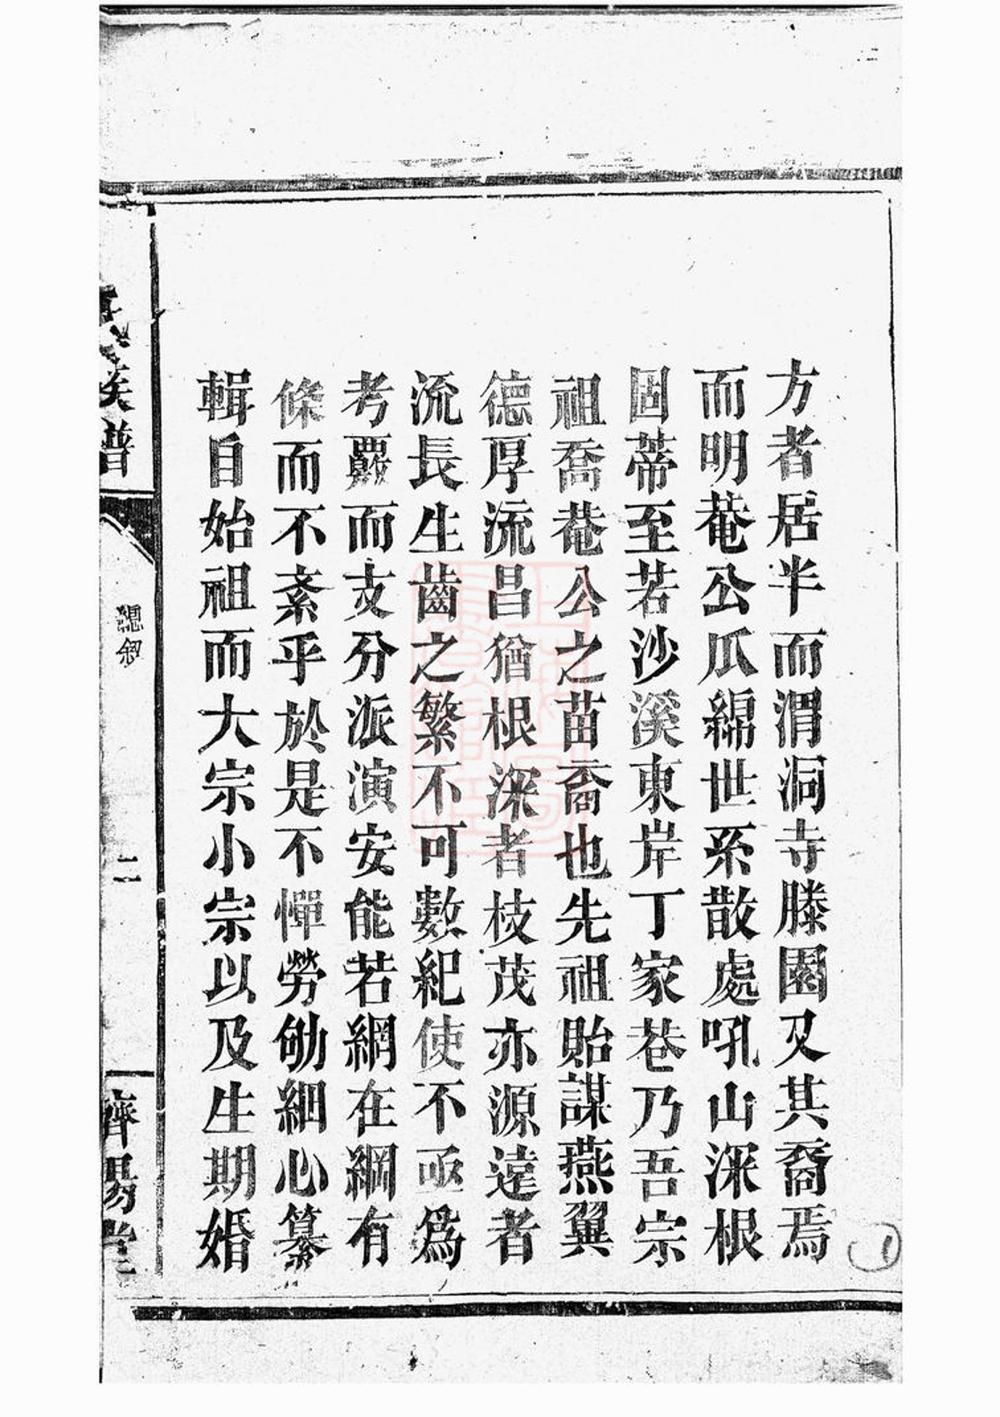 方者居半而渭洞寺滕園又其裔焉
而明菴公瓜綿世系散處吼山深根
固蒂至若沙溪東岸丁家巷乃吾宗
祖喬菴公之苗裔也先祖貽謀燕翼
德厚流昌猶根深者枝茂亦源遠者
流長生齒之繁不可數紀使不亟爲
考覈而支分派演安能若網在綱有
條而不紊乎於是不憚勞劬細心纂
輯自始祖而大宗小宗以及生期婚
氏族譜
總叙
二
濟陽堂